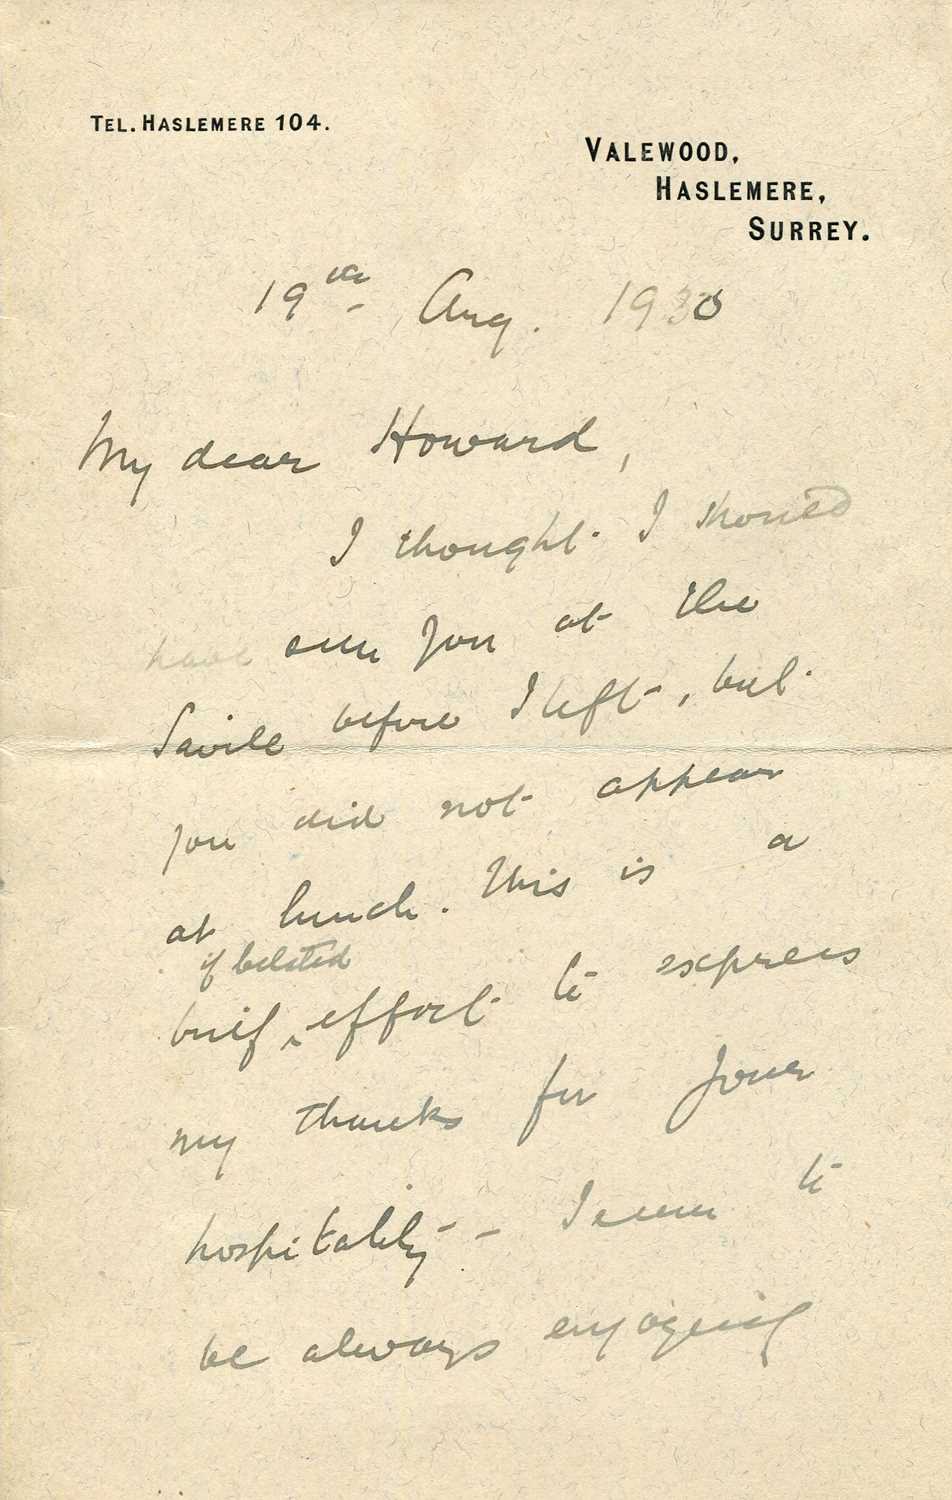 TEL. HASLEMERE 104.
VALEWOOD,
HASLEMERE,
SURREY.
19th Aug. 1930
My dear Howard,
I thought I should
have seen you at the
Savile before I left, but
you did not appear
at lunch. This is a
if belated
brief ‸ effort to express
my thanks for your
hospitality – I seem to
be always enjoying